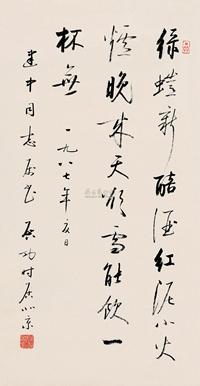 绿蟻新醅酒红泥小火
炉晚来天欲雪能饮一
杯无
一九八七年夏日
建中同志属书 启功时居小京